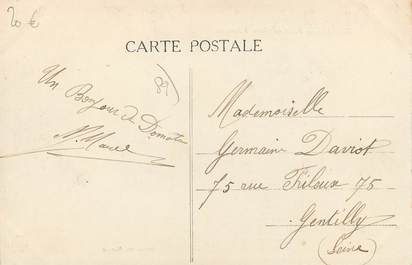 20 €
CARTE POSTALE
89
Un Bonjour de Domats
M. Marcel
Mademoiselle
Germaine Daviot
75 rue Frileux 75
Gentilly
(Seine)